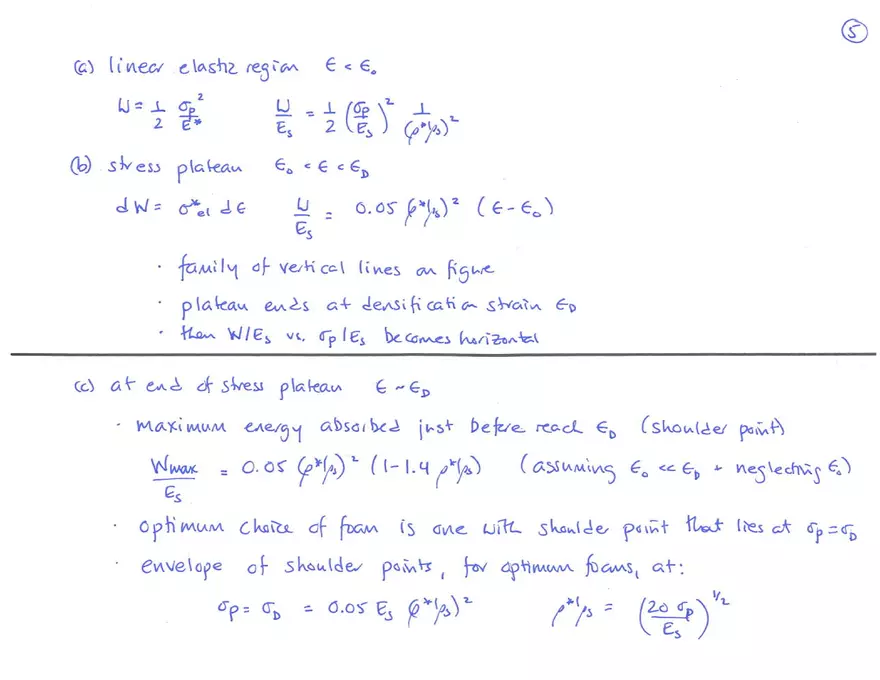 5
(a) linear elastic region ϵ < ϵ₀
W = 1/2 σp²/E* W/Es = 1/2 (σp/Es)² 1/(ρ*/ρs)²
(b) stress plateau ϵ₀ < ϵ < ϵD
dW = σ*el dϵ W/Es = 0.05 (ρ*/ρs)² (ϵ - ϵ₀)
· family of vertical lines on figure
· plateau ends at densification strain ϵD
· then W/Es vs. σp/Es becomes horizontal
(c) at end of stress plateau ϵ ~ ϵD
· maximum energy absorbed just before reach ϵD (shoulder point)
Wmax/Es = 0.05 (ρ*/ρs)² (1-1.4 ρ*/ρs) (assuming ϵ₀ << ϵD + neglecting ϵ₀)
· optimum choice of foam is one with shoulder point that lies at σp = σD
· envelope of shoulder points, for optimum foams, at:
σp = σD = 0.05 Es (ρ*/ρs)² ρ*/ρs = (20 σp/Es)^1/2